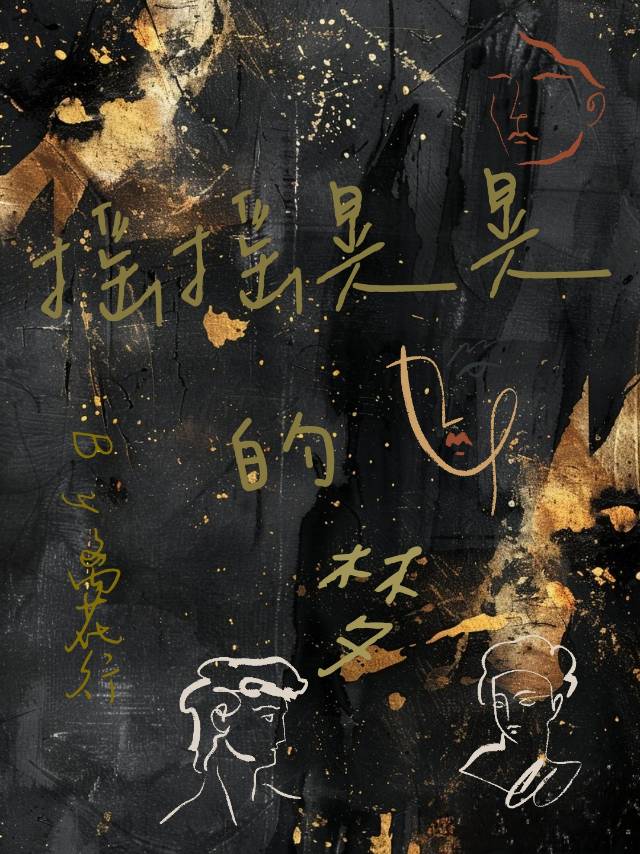 摇摇晃晃
的
梦
By 萬花行